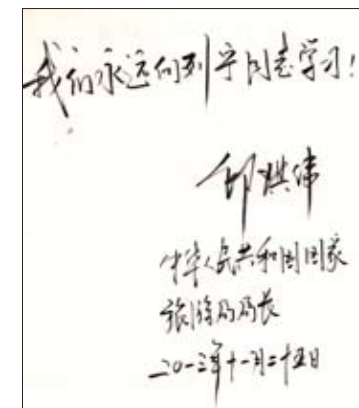 我们永远向列宁同志学习!
邵琪伟
中华人民共和国国家
旅游局局长
二〇一三年十一月二十五日